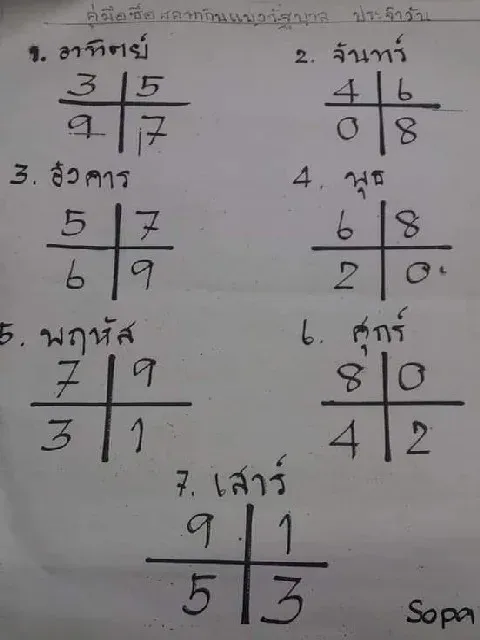 คู่มือซื้อสลากกินแบ่งรัฐบาล ประจำวัน
1. อาทิตย์ 2. จันทร์
3 5 4 6
9 7 0 8
3. อังคาร 4. พุธ
5 7 6 8
6 9 2 0
5. พฤหัส 6. ศุกร์
7 9 8 0
3 1 4 2
7. เสาร์
9 1
5 3
Sopa